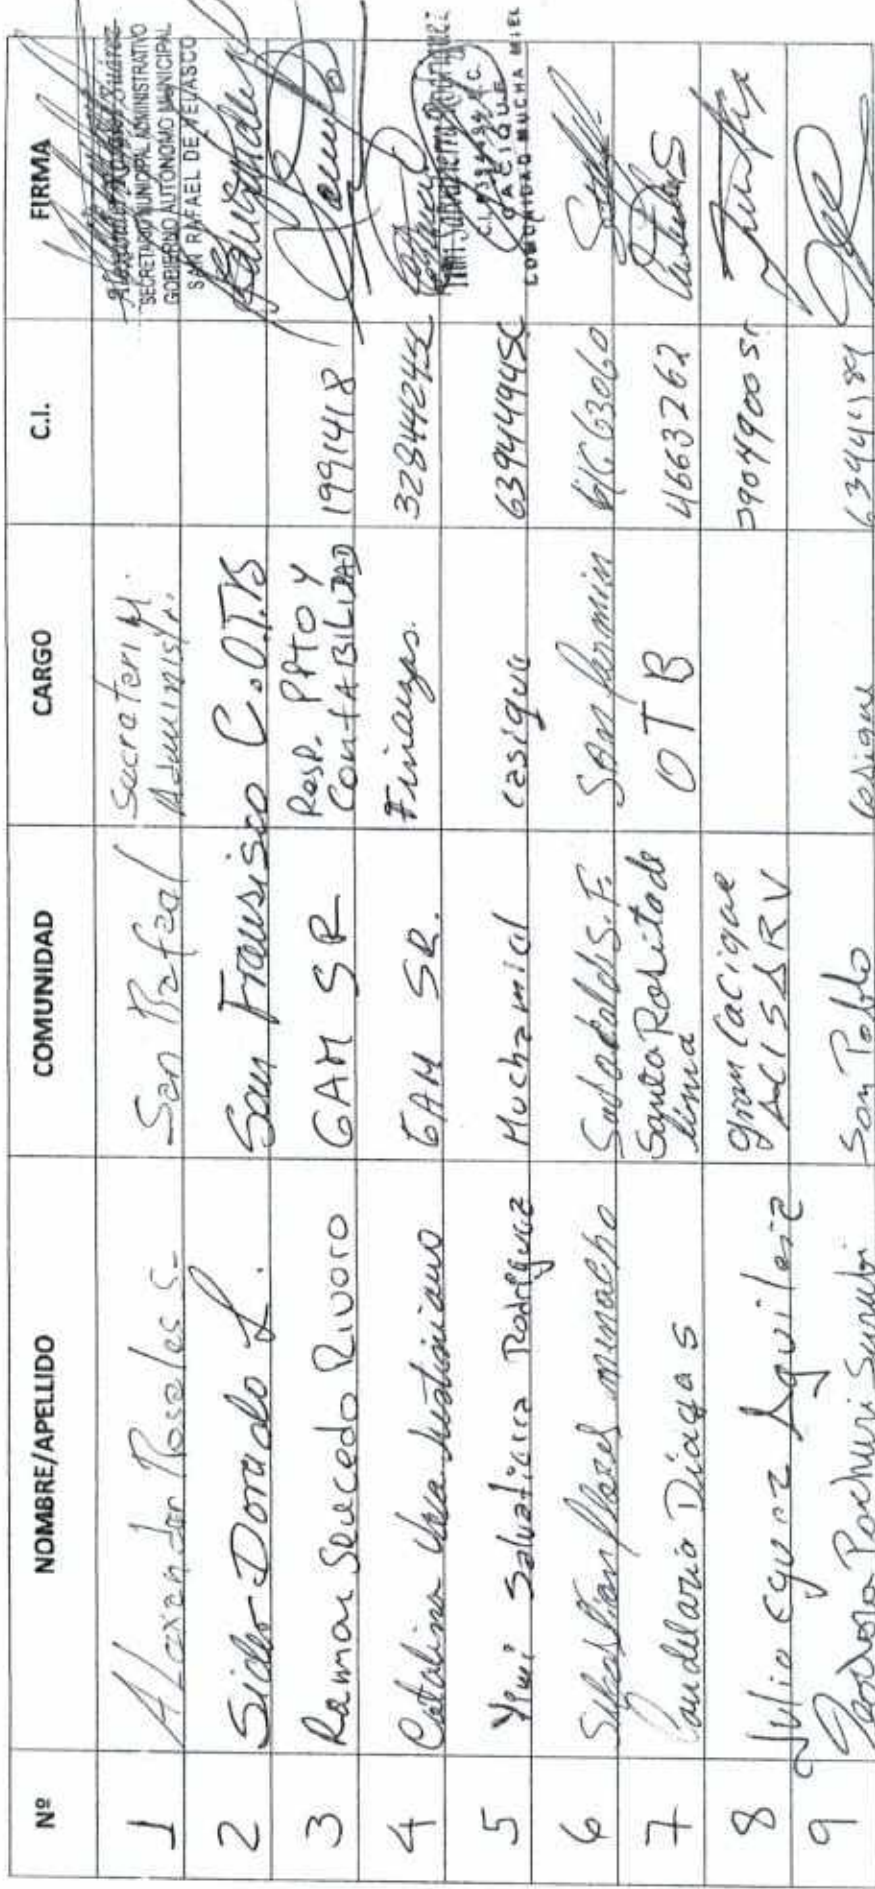 Nº NOMBRE/APELLIDO COMUNIDAD CARGO C.I. FIRMA
1 Alexander Rosales S. San Rafael Sucreteri M.
Administr.
SECRETARIO MUNICIPAL ADMINISTRATIVO
GOBIERNO AUTONOMO MUNICIPAL
SAN RAFAEL DE VELASCO
2 Sider Dorado L. San Fransisco C.O.T.B
3 Ramon Saucedo Rivero GAM SR Resp. PPTO Y
CONTABILIDAD 1991418
4 Catalina Vaca Justiniano GAM SR. Finanzas. 3284424SC
5 Yimi Salvatierra Rodriguez Muchamiel Casique 6394494SC
Yimi Salvatierra Rodriguez
CACIQUE
COMUNIDAD MUCHA MIEL
6 Sebastian flores menacho S.F. San fermin
7 Candelario Diagos Santa Rosita de
lima OTB 4663262
8 Julio Eguez Aguilera gran Cacique
ACISARV 3904900 Sc
9 Pachuri Surubi San Pablo Casique